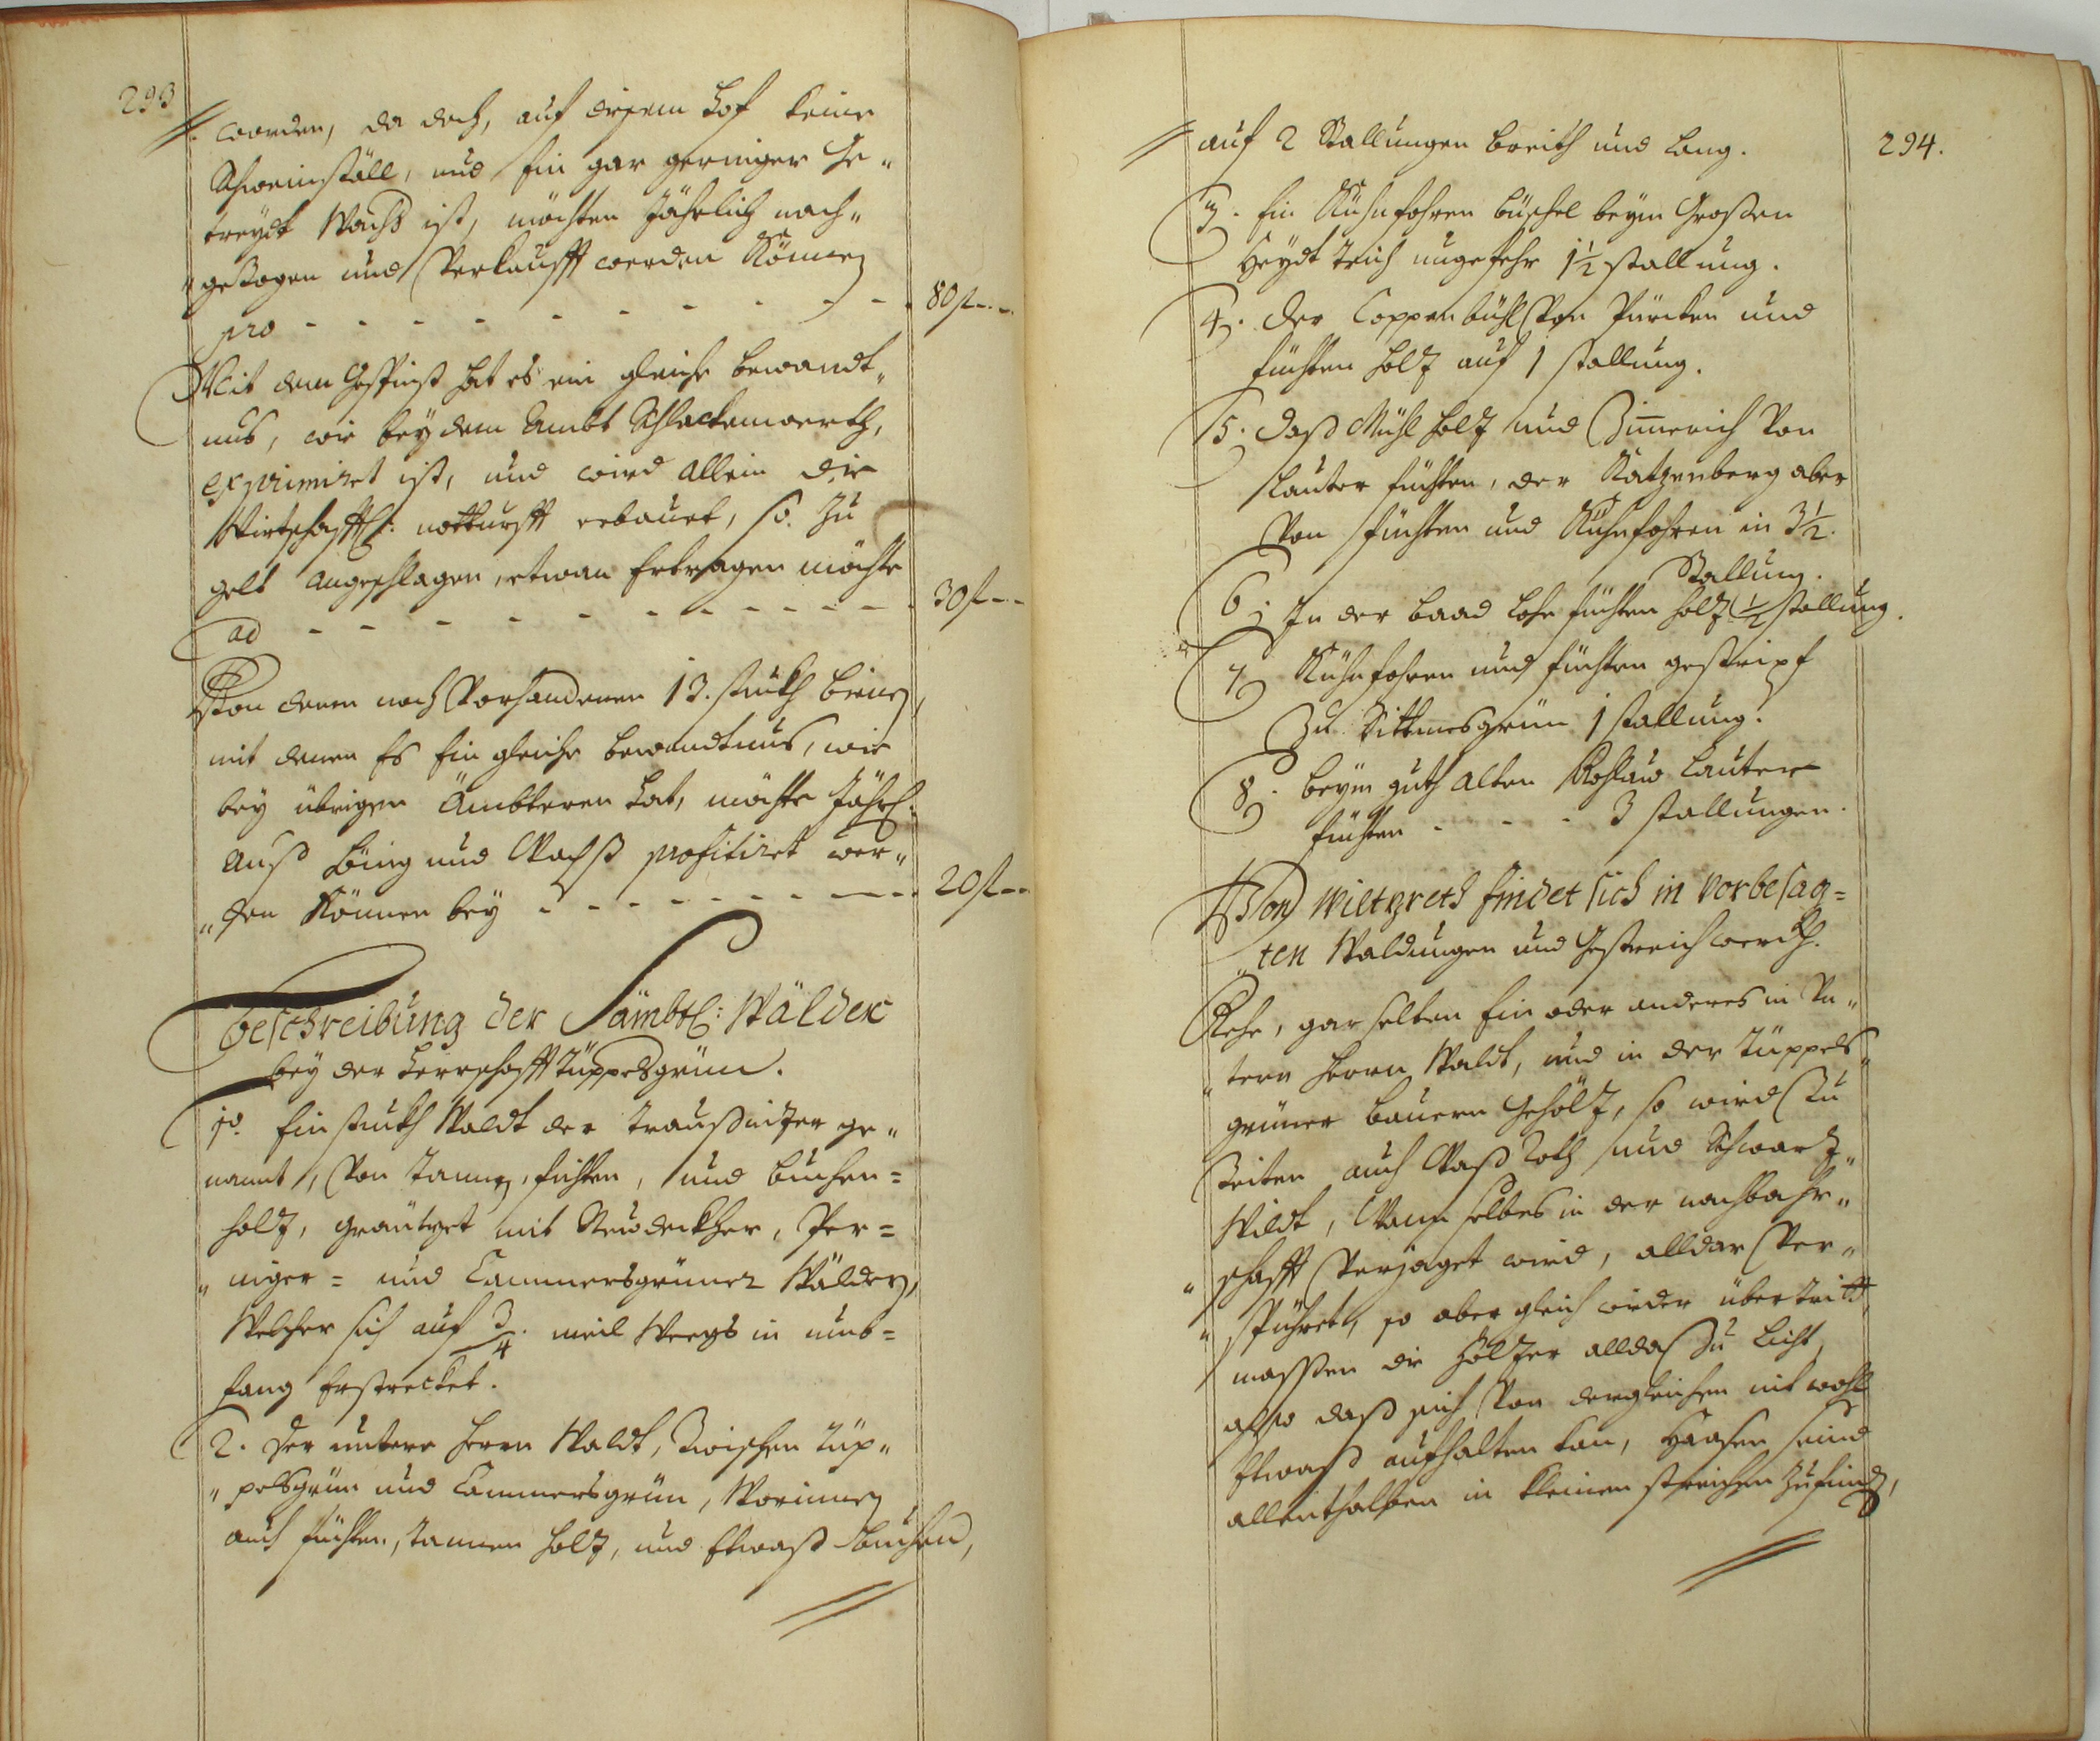 293
worden, da doch, auf diesem Hof keine
Schweinställ, und Ein gar geringer Ge„
treydt Wachs ist, möchten Jährlich nach„
„gezogen und Verkaufft werden Können
pro - - - - - - - - - 80 fl - -
Mit dem Gespinst hat es ein gleiche bewandt„
nus, wie bey dem Ambt Schlackenwerth,
exprimiret ist, und wird allein die
Wirtschafftl: notturfft erbauet, so. Zu
gelt angeschlagen, etwan Ertragen möchte
ad - - - - - - - - - - 30 fl - -
Von denen noch Vorhandenen 13. stukh Beinen,
mit denen Es Ein gleiche bewandtnus, wie
bey übrigen Ämbteren hat, möchte Jährl:
auß Hönig und Wachß profitiret wer„
„den Können bey - - - - - - - - 20 fl - -
Beschreibung der Sämbtl: Wälder
bey der Herrschafft Tüppelsgrün.
1o. Ein stukh Waldt der Traußnitzer ge„
nannt, Von Tannen, fichten, und Buchen=
holtz, gräntzet mit Neudeckher, Per=
„ niger= und Cammersgrüner Wälder,
Welcher sich auf 3/4. meil Weegs in umb=
fang Erstrecket.
2. Der untere Herrn Waldt, Zwischen Tüp„
„ pelsgrün und Cammersgrün, Worinnen
auch füchten, Tannen holtz, und Etwaß Buchen,
294.
auf 2 Stallungen breith und lang.
3. Ein Kühnfohren büschel beym Großen
Heydt Teich ungefehr 1 1/2 stallung.
4. Der Coppenbühl Von Pürcken und
füchten holtz auf 1 stallung.
5. Daß Mühl holtz und Zim̅erich Von
lauter füchten, der Katzenberg aber
Von füchten und Kühnfohren in 3 1/2.
Stallung.
6. In der Baad Lohe füchten holtz 1/2 stallung.
7. Kühnfohren und füchten gestripf
Zu Sittmesgrün 1 stallung.
8. Beym guth Alten Rohlau Lauter
füchten - - - 3 stallungen.
Von Wiltpreth findet sich in vorbesag=
„ten Waldungen und Gestreichwerckh.
Rehe, gar selten Ein oder anderes in Un„
„tern Herrn Waldt, und in der Tüppels„
grüner Bauern Gehöltz, so wird Zu
Zeiten auch Waß Roth und Schwartz„
Wildt, Wann selbes in der nachbahr„
„schafft Verjaget wird, alldar Ver„
„spühret, so aber gleich wieder übertritt,
massen die Höltzer allda Zu licht,
also daß sich Von dergleichen nit wohl
Etwaß aufhalten kan, Haasen seind
allenthalben in kleinen streichen Zufinden,